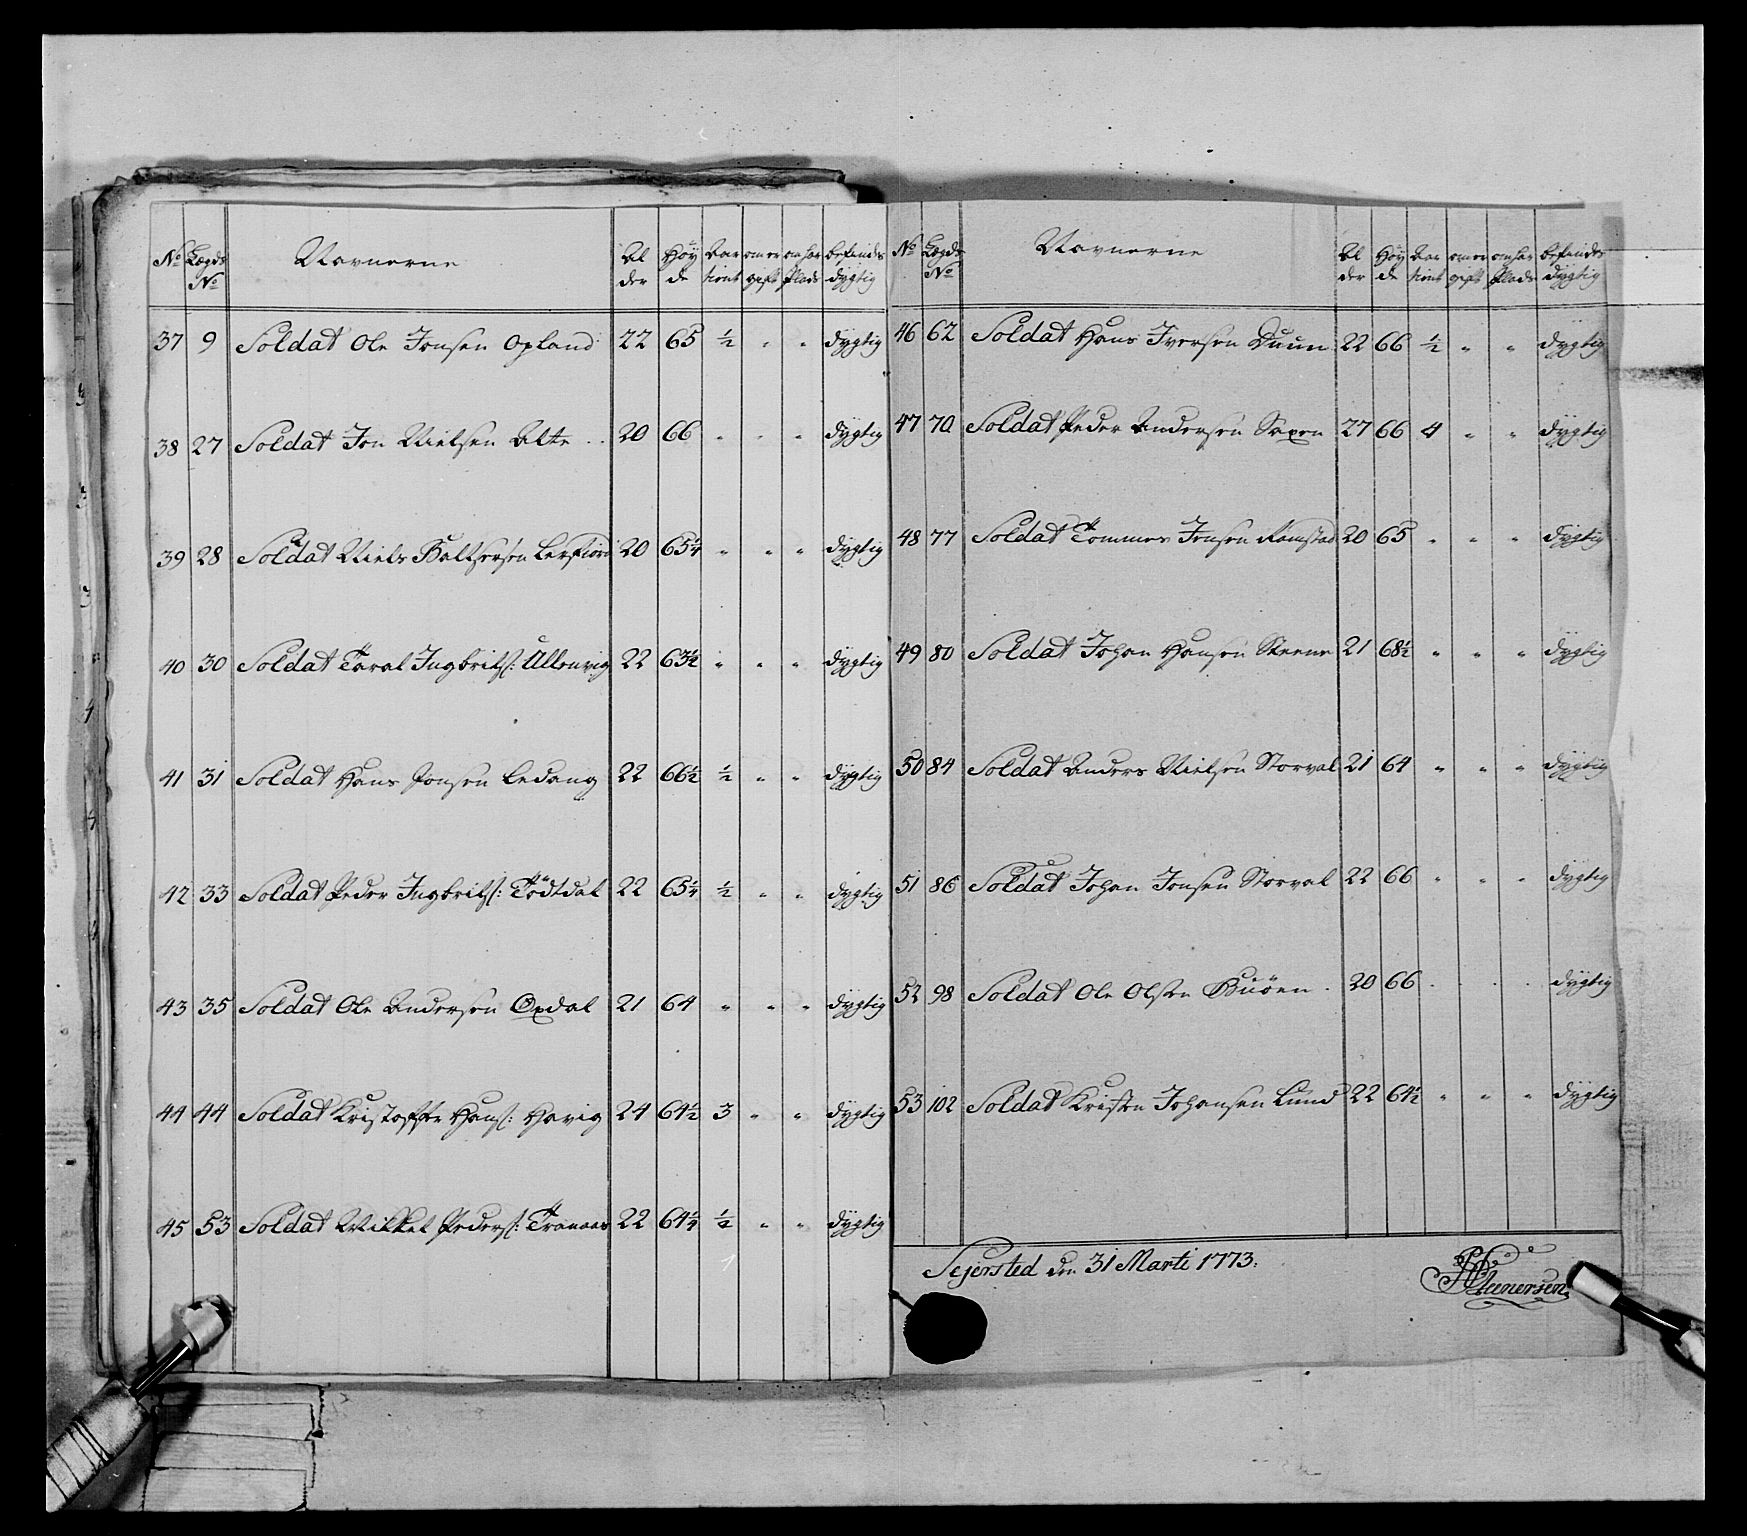 No Lægds No Navnerne Al der Høy de Aar tient om er gift om har Plads befindes dygtig
37 9 Soldat Ole Jonsen Opland 22 65 ½ " " dygtig
38 27 Soldat Jon Nielsen Alte 20 66 " " " dygtig
39 28 Soldat Niels Baltsersen Lerfiord 20 65¼ " " " dygtig
40 30 Soldat Taral Ingbrits: Ullenvig 22 63½ " " " dygtig
41 31 Soldat Hans Jonsen Ledang 22 66½ ½ " " dygtig
42 33 Soldat Peder Ingbrits: Födtdal 22 65¼ ½ " " dygtig
43 35 Soldat Ole Andersen Oxdal 21 64 " " " dygtig
44 44 Soldat Kristoffer Hans: Havig 24 64½ 3 " " dygtig
45 53 Soldat Mikkel Peders: Tranaas 22 64¼ ½ " " dygtig
No Lægds No Navnerne Al der Høy de Aar tient om er gift om har Plads befindes dygtig
46 62 Soldat Hans Iversen Duun 22 66 ½ " " dygtig
47 70 Soldat Peder Andersen Saxen 27 66 4 " " dygtig
48 77 Soldat Tommes Jensen Ramstad 20 65 " " " dygtig
49 80 Soldat Johan Hansen Steene 21 68½ " " " dygtig
50 84 Soldat Anders Nielsen Storval 21 64 " " " dygtig
51 86 Soldat Johan Jonsen Storval 22 66 " " " dygtig
52 98 Soldat Ole Olsen Buöen 20 66 " " " dygtig
53 102 Soldat Kristen Johansen Lund 22 64½ " " " dygtig
Sejersted den 31 Marti 1773.